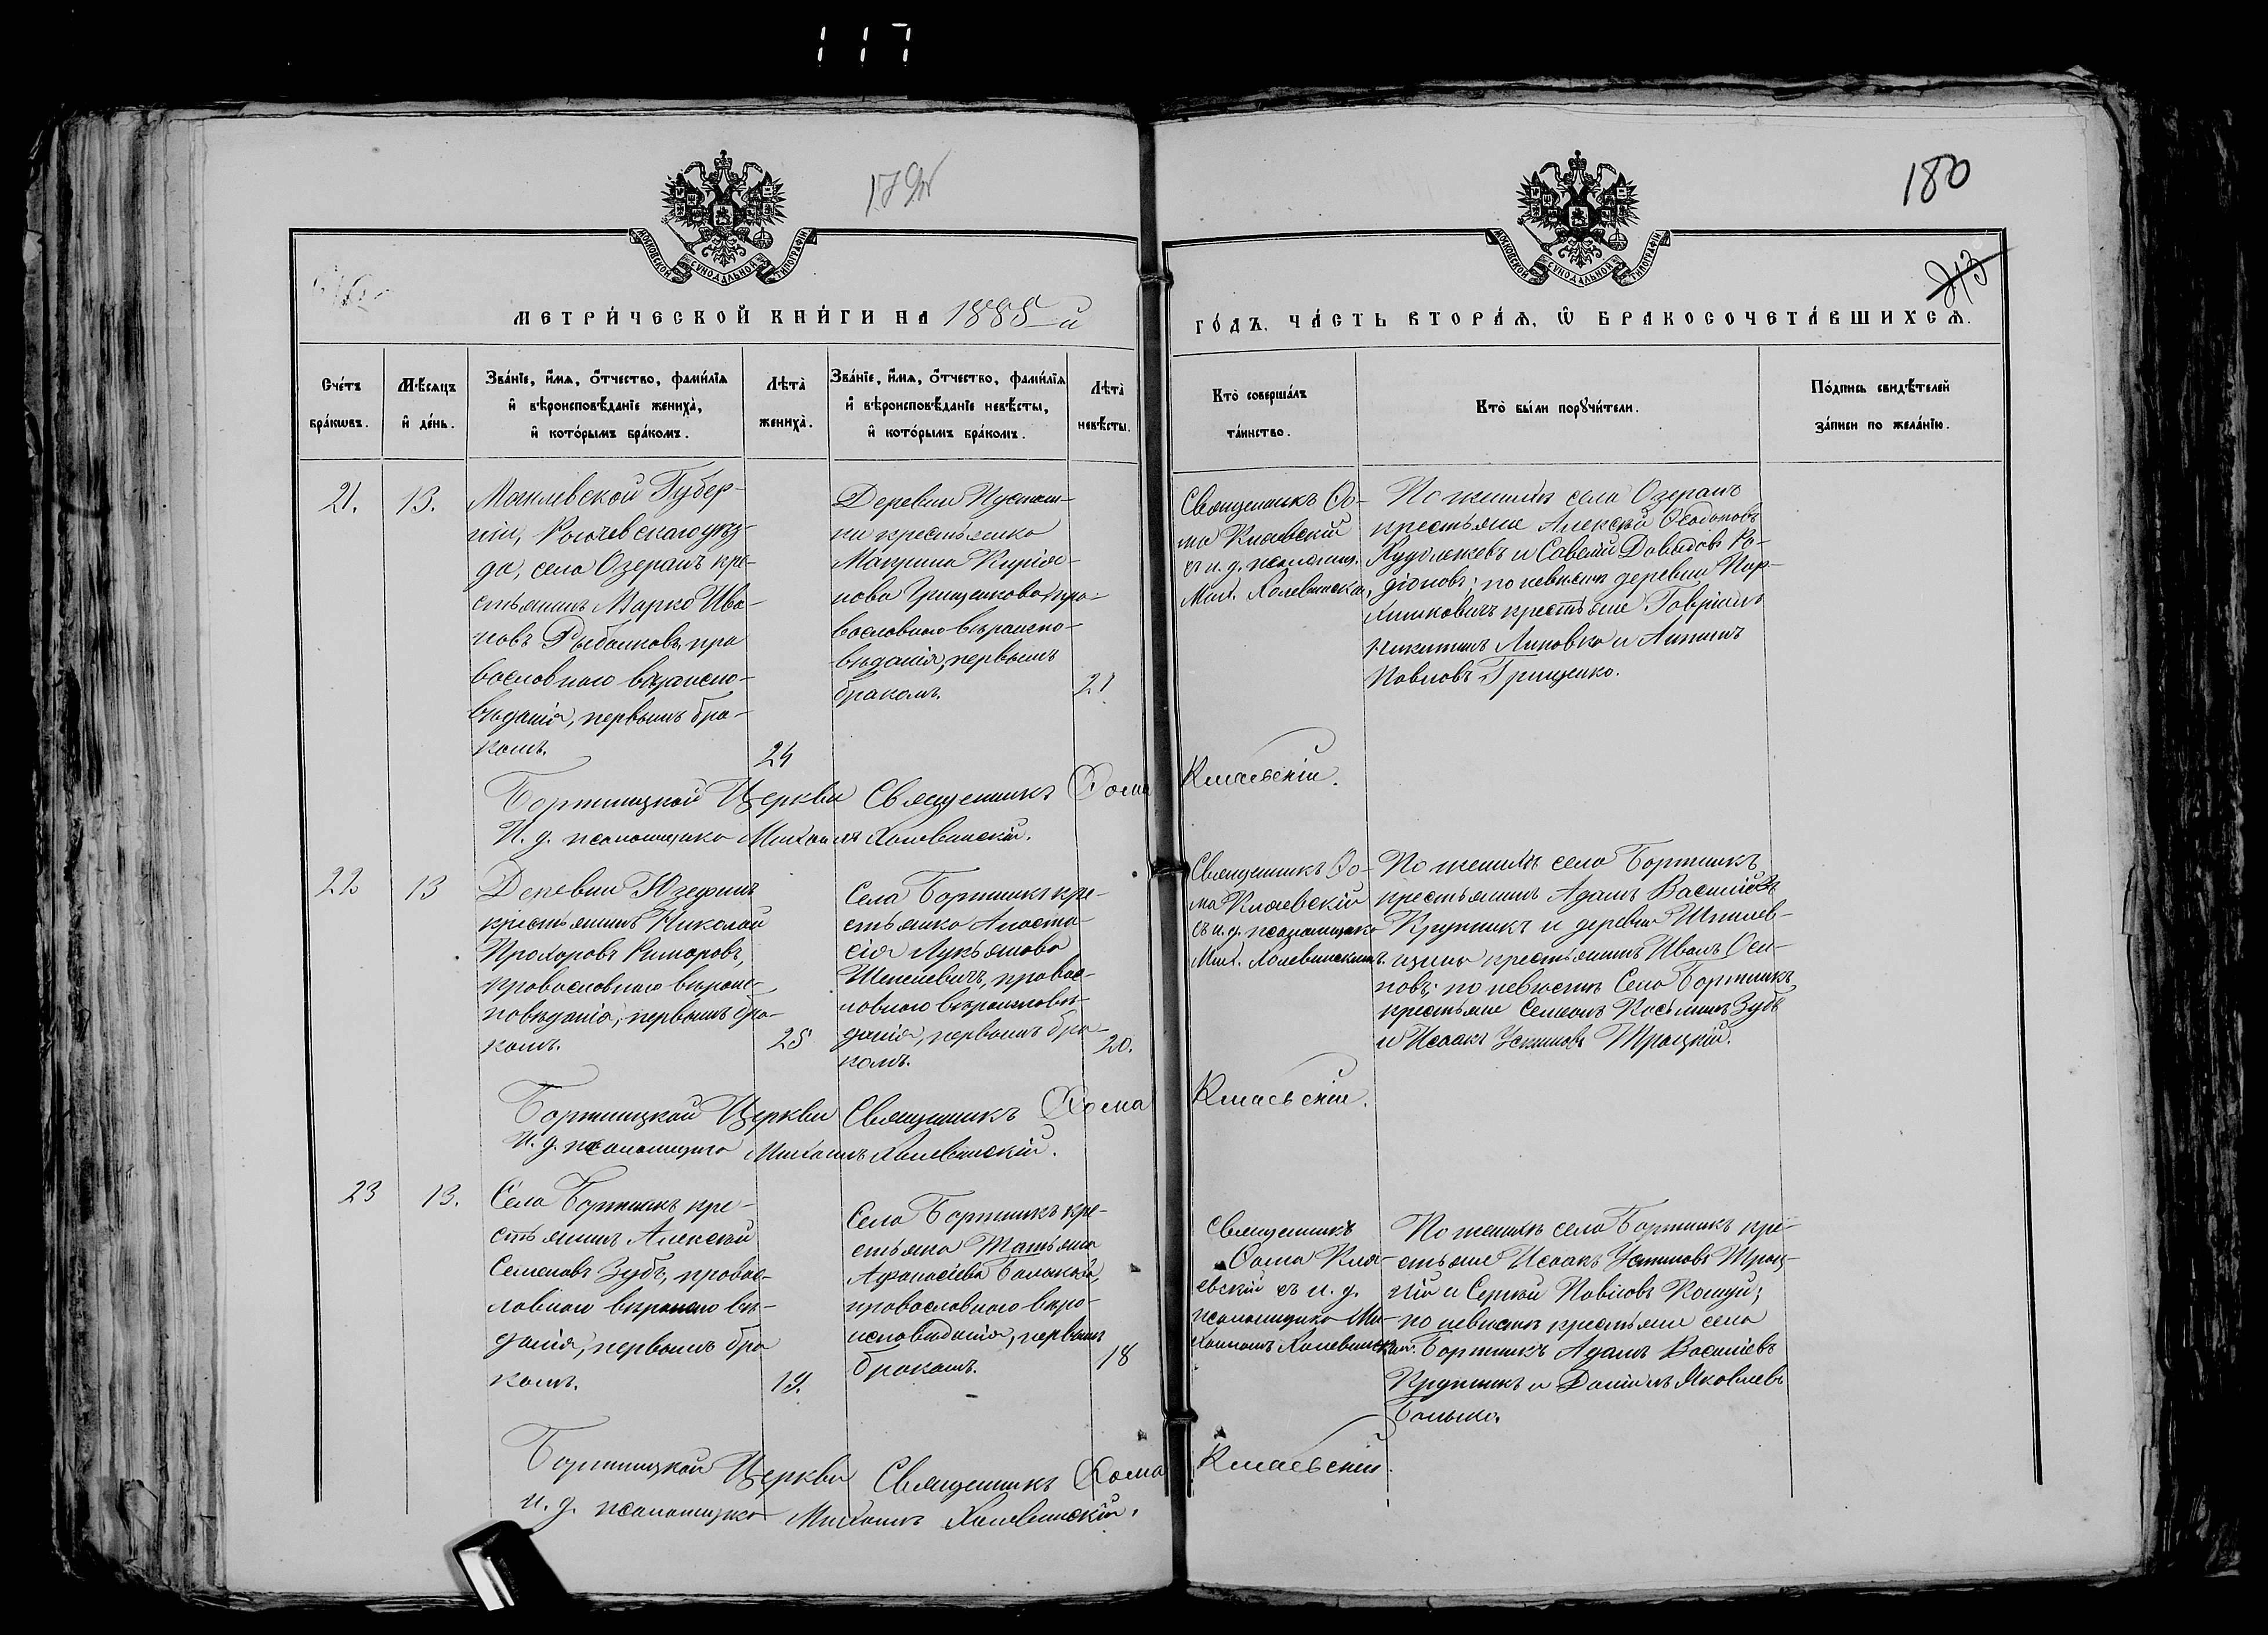 117
180
213
МОСКОВСКОЙ СѴНОДАЛЬНОЙ ТИПОГРАФІИ
МОСКОВСКОЙ СѴНОДАЛЬНОЙ ТИПОГРАФІИ
МЕТРИ́ЧЕСКОЙ КНИ́ГИ НА 1885-й
ГО́ДЪ, ЧА́СТЬ ВТОРА́Ѧ, Ѡ҆ БРАКОСОЧЕТА́ВШИХСѦ.
Сче́тъ
бра́кѡвъ.
Мѣ́сяцъ
и҆ де́нь.
Зва́нїе, и҆́мѧ, ѻ҆́тчество, фами́лїѧ
и҆ вѣроисповѣ́данїе жениха̀,
и҆ кото́рымъ бра́комъ.
Лѣта̀
жениха̀.
Зва́нїе, и҆́мѧ, ѻ҆́тчество, фами́лїѧ
и҆ вѣроисповѣ́данїе невѣ́сты,
и҆ кото́рымъ бра́комъ.
Лѣта̀
невѣ́сты.
Кто̀ соверша́лъ
та́инство.
Кто̀ бы́ли порꙋчи́тели.
По́дпись свидѣ́телей
за́писи по жела́нїю.
21.
13.
Могилевской Губер-
ніи, Рогачевскаго уѣз-
да, села Озеранъ кре-
стьянинъ Марко Ива-
новъ Рыбаковъ, пра
вославнаго вѣроиспо-
вѣданія, первымъ бра-
комъ.
24
Деревни Пустын-
ки крестьянка
Макрина Кирія-
нова Грищенкова, пра-
вославнаго вѣроиспо-
вѣданія, первымъ
бракомъ.
21
Священникъ Ѳо-
ма Киаевскій
съ и. д. псаломщ.
Мих. Холевинским,
По женихѣ села Озеранъ
крестьяне Алексѣй Ѳеодоновъ
и Савелій Давыдовъ Ро-
діоновъ; по невѣстѣ деревни Пар-
химковичъ крестьяне Гавріилъ
Никитинъ Липовка и Антонъ
Павловъ Грищенко.
Бортницкой Церкви Священникъ Ѳома Киаевскій.
И. д. псаломщика Михаилъ Холевинскій.
22
13
Деревни Юзефинъ
крестьянинъ Николай
Прохоровъ Римаровъ,
православнаго вѣроис-
повѣданія, первымъ бра-
комъ.
25
Села Бортникъ кре-
стьянка Анаста
сія Лукьянова
Шепелевичъ, правос-
лавнаго вѣроисповѣ-
данія, первымъ бра-
комъ.
20.
Священникъ Ѳо-
ма Киаевскій
съ и. д. псаломщика
Мих. Холевинскимъ.
По женихѣ села Бортникъ
крестьянинъ Адамъ Василіевъ
Крупникъ и деревни Шпилев-
щины крестьянинъ Иванъ Оси-
повъ; по невѣстѣ Села Бортникъ
крестьяне Семеонъ Косьминъ Зубъ
и Исаакъ Устиновъ Троцкій.
Бортницкой Церкви Священникъ Ѳома Киаевскій.
И. д. псаломщика Михаилъ Холевинскій.
23
13.
Села Бортникъ кре-
стьянинъ Алексѣй
Семеновъ Зубъ, правос-
лавнаго вѣроисповѣ-
данія, первымъ бра
комъ.
19.
Села Бортникъ кре-
стьянка Татьяна
Афанасіева Балыкова,
православнаго вѣро-
исповѣданія, первымъ
бракомъ.
18
Священникъ
Ѳома Киа-
евскій съ и. д.
псаломщика Ми-
хаиломъ Холевинским.
По женихѣ села Бортникъ кре-
стьяне Исаакъ Устиновъ Троц-
кій и Сергѣй Павловъ Кощуй;
по невѣстѣ крестьяне села
Бортникъ Адамъ Василіевъ
Крупникъ и Даніилъ Яковлевъ
Балыко.
Бортницкой Церкви Священникъ Ѳома Киаевскій.
и. д. псаломщика Михаилъ Холевинскій.